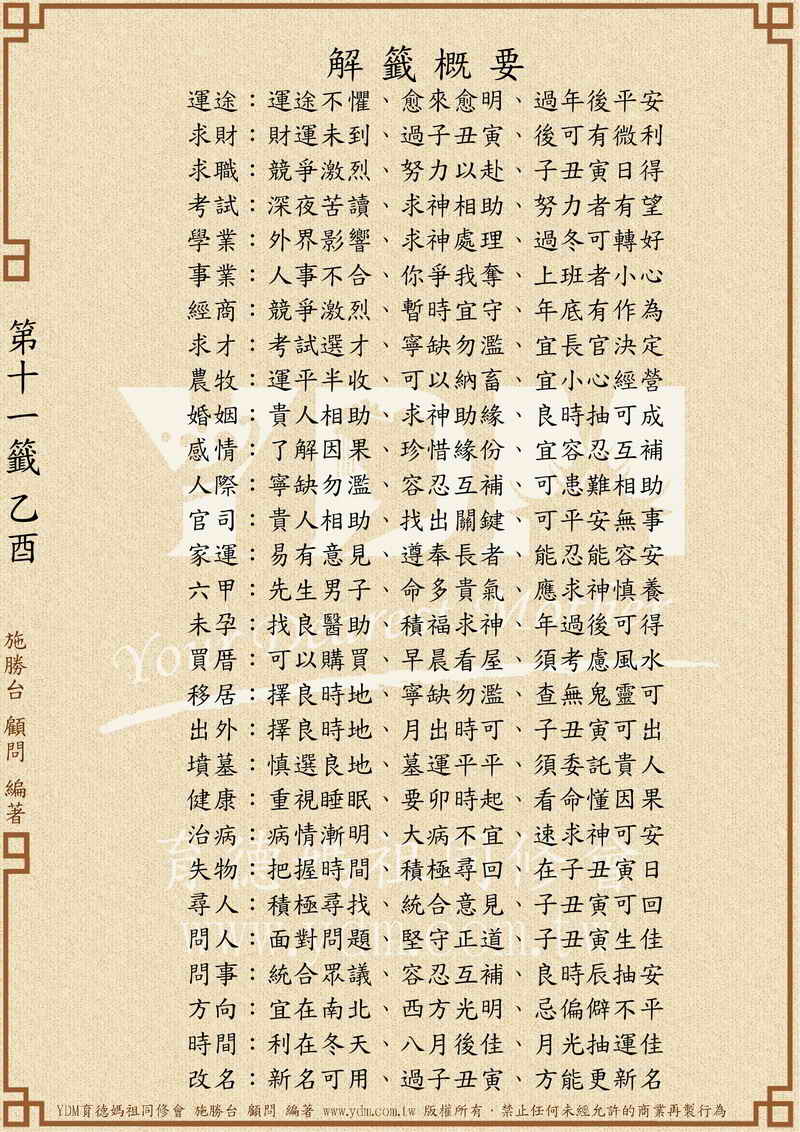 解籤概要
運途：運途不懼、愈來愈明、過年後平安
求財：財運未到、過子丑寅、後可有微利
求職：競爭激烈、努力以赴、子丑寅日得
考試：深夜苦讀、求神相助、努力者有望
學業：外界影響、求神處理、過冬可轉好
事業：人事不合、你爭我奪、上班者小心
經商：競爭激烈、暫時宜守、年底有作為
求才：考試選才、寧缺勿濫、宜長官決定
農牧：運平半收、可以納畜、宜小心經營
婚姻：貴人相助、求神助緣、良時抽可成
感情：了解因果、珍惜緣份、宜容忍互補
人際：寧缺勿濫、容忍互補、可患難相助
官司：貴人相助、找出關鍵、可平安無事
家運：易有意見、遵奉長者、能忍能容安
六甲：先生男子、命多貴氣、應求神慎養
未孕：找良醫助、積福求神、年過後可得
買厝：可以購買、早晨看屋、須考慮風水
移居：擇良時地、寧缺勿濫、查無鬼靈可
出外：擇良時地、月出時可、子丑寅可出
墳墓：慎選良地、墓運平平、須委託貴人
健康：重視睡眠、要卯時起、看命懂因果
治病：病情漸明、大病不宜、速求神可安
失物：把握時間、積極尋回、在子丑寅日
尋人：積極尋找、統合意見、子丑寅可回
問人：面對問題、堅守正道、子丑寅生佳
問事：統合眾議、容忍互補、良時辰抽安
方向：宜在南北、西方光明、忌偏僻不平
時間：利在冬天、八月後佳、月光抽運佳
改名：新名可用、過子丑寅、方能更新名
第十一籤 乙酉
施勝台 顧問 編著
YDM
Your Dearest Mother
育德媽祖同修會
www.ydm.com.tw
YDM育德媽祖同修會 施勝台 顧問 編著 www.ydm.com.tw 版權所有．禁止任何未經允許的商業再製行為